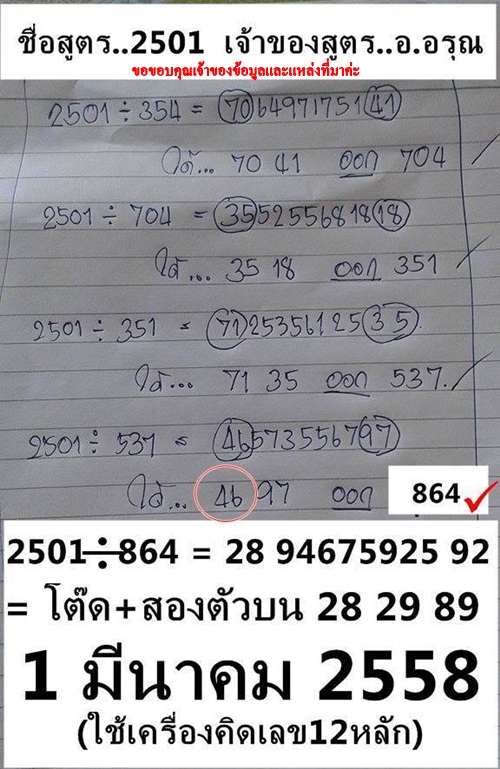 ชื่อสูตร..2501 เจ้าของสูตร..อ.อรุณ
ขอขอบคุณเจ้าของข้อมูลและแหล่งที่มาค่ะ
2501 ÷ 354 = 7064971751 41
ได้... 70 41 ออก 704
2501 ÷ 704 = 3552556818 18
ได้... 35 18 ออก 351
2501 ÷ 351 = 7125356125 35
ได้... 71 35 ออก 537
2501 ÷ 537 = 46573556797
ได้... 46 97 ออก 864
2501÷864 = 28 94675925 92
= โต๊ด+สองตัวบน 28 29 89
1 มีนาคม 2558
(ใช้เครื่องคิดเลข12หลัก)